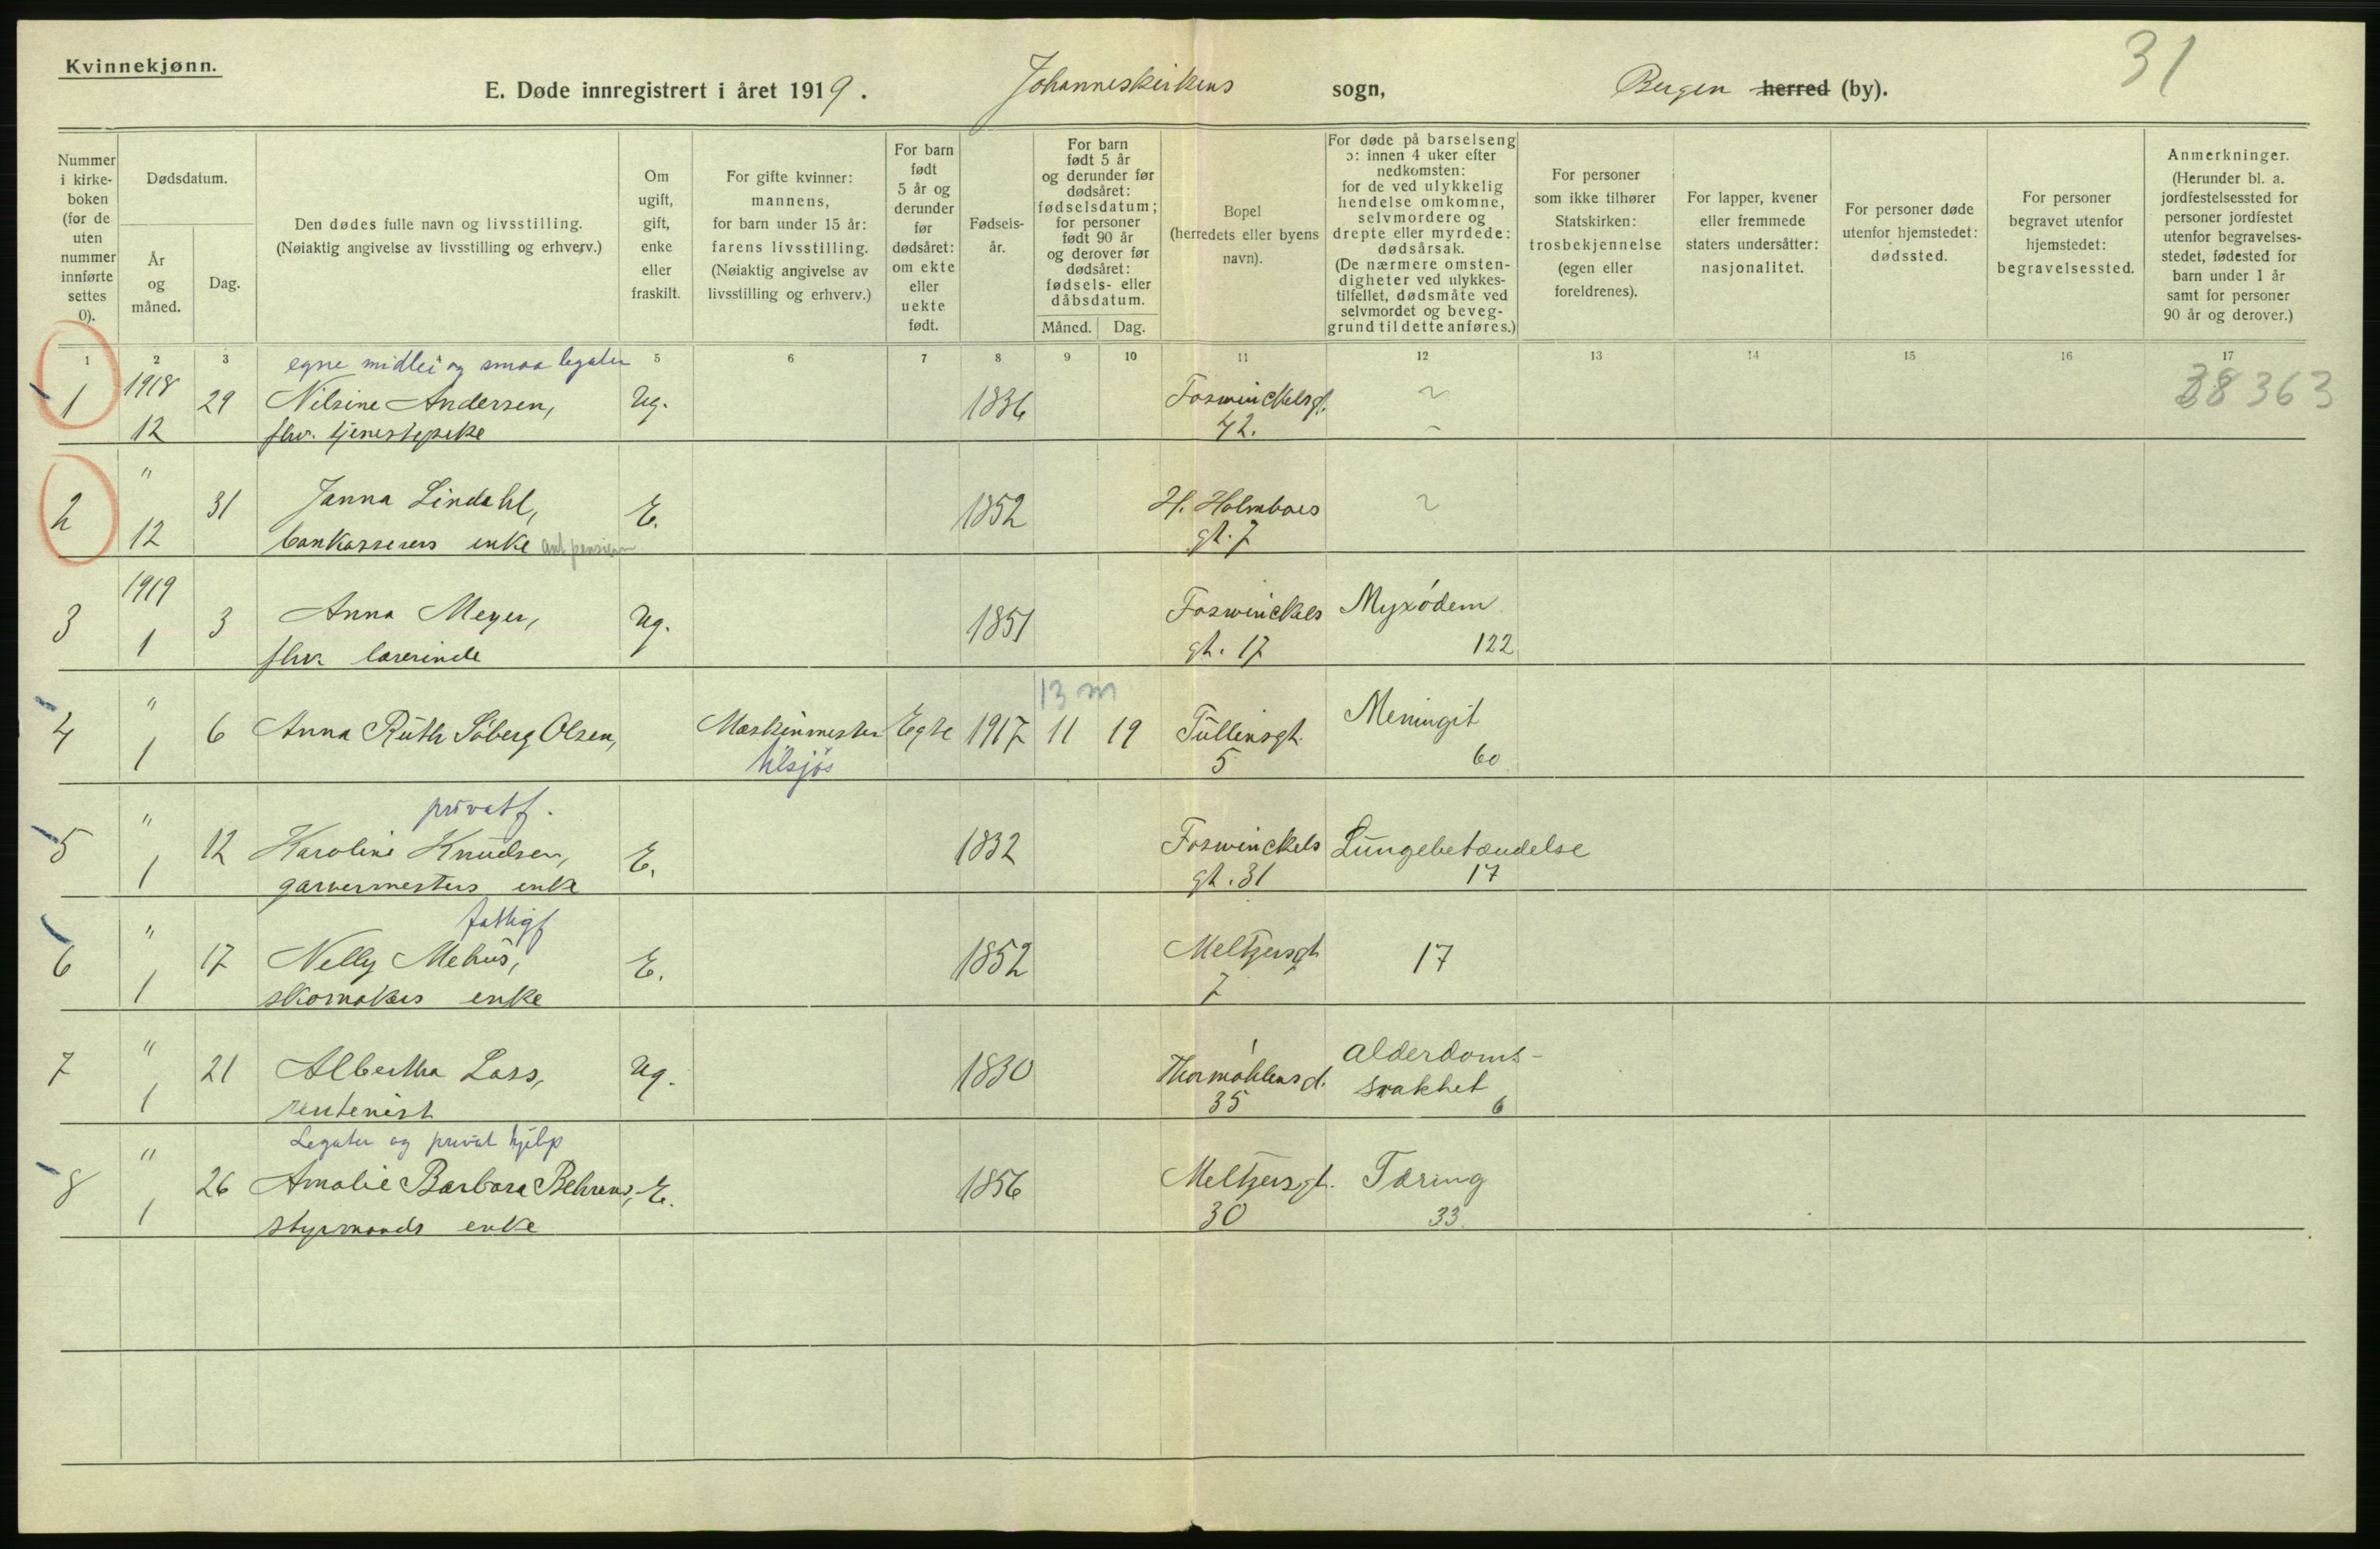 Kvinnekjønn.
31
E. Døde innregistrert i året 1919. Johanneskirkens sogn, Bergen herred (by).
Nummer i kirke-boken (for de uten nummer innførte settes 0).
Dødsdatum.
År og måned.
Dag.
Den dødes fulle navn og livsstilling.
(Nøiaktig angivelse av livsstilling og erhverv.)
Om ugift, gift, enke eller fraskilt.
For gifte kvinner: mannens, for barn under 15 år: farens livsstilling. (Nøiaktig angivelse av livsstilling og erhverv.)
For barn født 5 år og derunder før dødsåret: om ekte eller uekte født.
Fødsels-år.
For barn født 5 år og derunder før dødsåret: fødselsdatum; for personer født 90 år og derover før dødsåret: fødsels- eller dåbsdatum.
Måned. Dag.
Bopel (herredets eller byens navn).
For døde på barselseng ɔ: innen 4 uker efter nedkomsten: for de ved ulykkelig hendelse omkomne, selvmordere og drepte eller myrdede: dødsårsak. (De nærmere omsten-digheter ved ulykkes-tilfellet, dødsmåte ved selvmordet og beveg-grund til dette anføres.)
For personer som ikke tilhører Statskirken: trosbekjennelse (egen eller foreldrenes).
For lapper, kvener eller fremmede staters undersåtter: nasjonalitet.
For personer døde utenfor hjemstedet: dødssted.
For personer begravet utenfor hjemstedet: begravelsessted.
Anmerkninger. (Herunder bl. a. jordfestelsessted for personer jordfestet utenfor begravelses-stedet, fødested for barn under 1 år samt for personer 90 år og derover.)
1 2 3 5 6 7 8 9 10 11 12 13 14 15 16 17
egne midler og smaa legater
1 1918 29 Nilsine Andersen, Ug. 1836 Foswinckelsgt. ~ 38363
12 fhv. tjenestepike 42. ~
2 " 31 Janna Lindahl, E. 1852 H. Holmboes ~
12 bankasserers enke ant pension gt. 7
3 1919 3 Anna Meyer, Ug. 1851 Foswinckels Myxödem
1 fhv. lærerinde gt. 17 122
13 m
4 " 6 Anna Ruth Söberg Olsen, Maskinmester Egte 1917 11 19 Tullinsgt. Meningit
1 tilsjös 5 60
privat f.
5 " 12 Karoline Knudsen, E. 1832 Foswinckels Lungebetændelse
1 garvermesters enke gt. 31 17
fattigf
6 " 17 Nelly Mehus, E. 1852 Meltzersgt. 17
1 skomakers enke 7
7 " 21 Albertha Lass, Ug. 1830 Thormöhlensgt. Alderdoms-
1 rentenist 35 svakhet 6
Legater og privat hjelp
8 " 26 Amalie Barbara Behrens, E. 1856 Meltzersgt. Tæring
1 styrmands enke 30 33